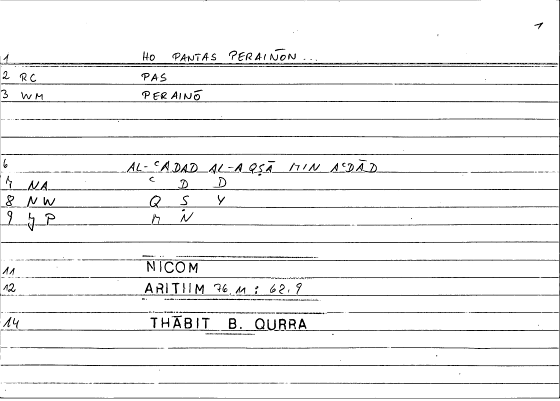 1
1 HO PANTAS PERAINŌN ...
2 RC PAS
3 WM PERAINŌ
6 AL-ᶜADAD AL-AQṢĀ MIN AᶜDĀD
7 NA ᶜ D D
8 NW Q Ṣ Y
9 P M N
11 NICOM
12 ARITIIM 76,11 : 62.9
14 THĀBIT B. QURRA